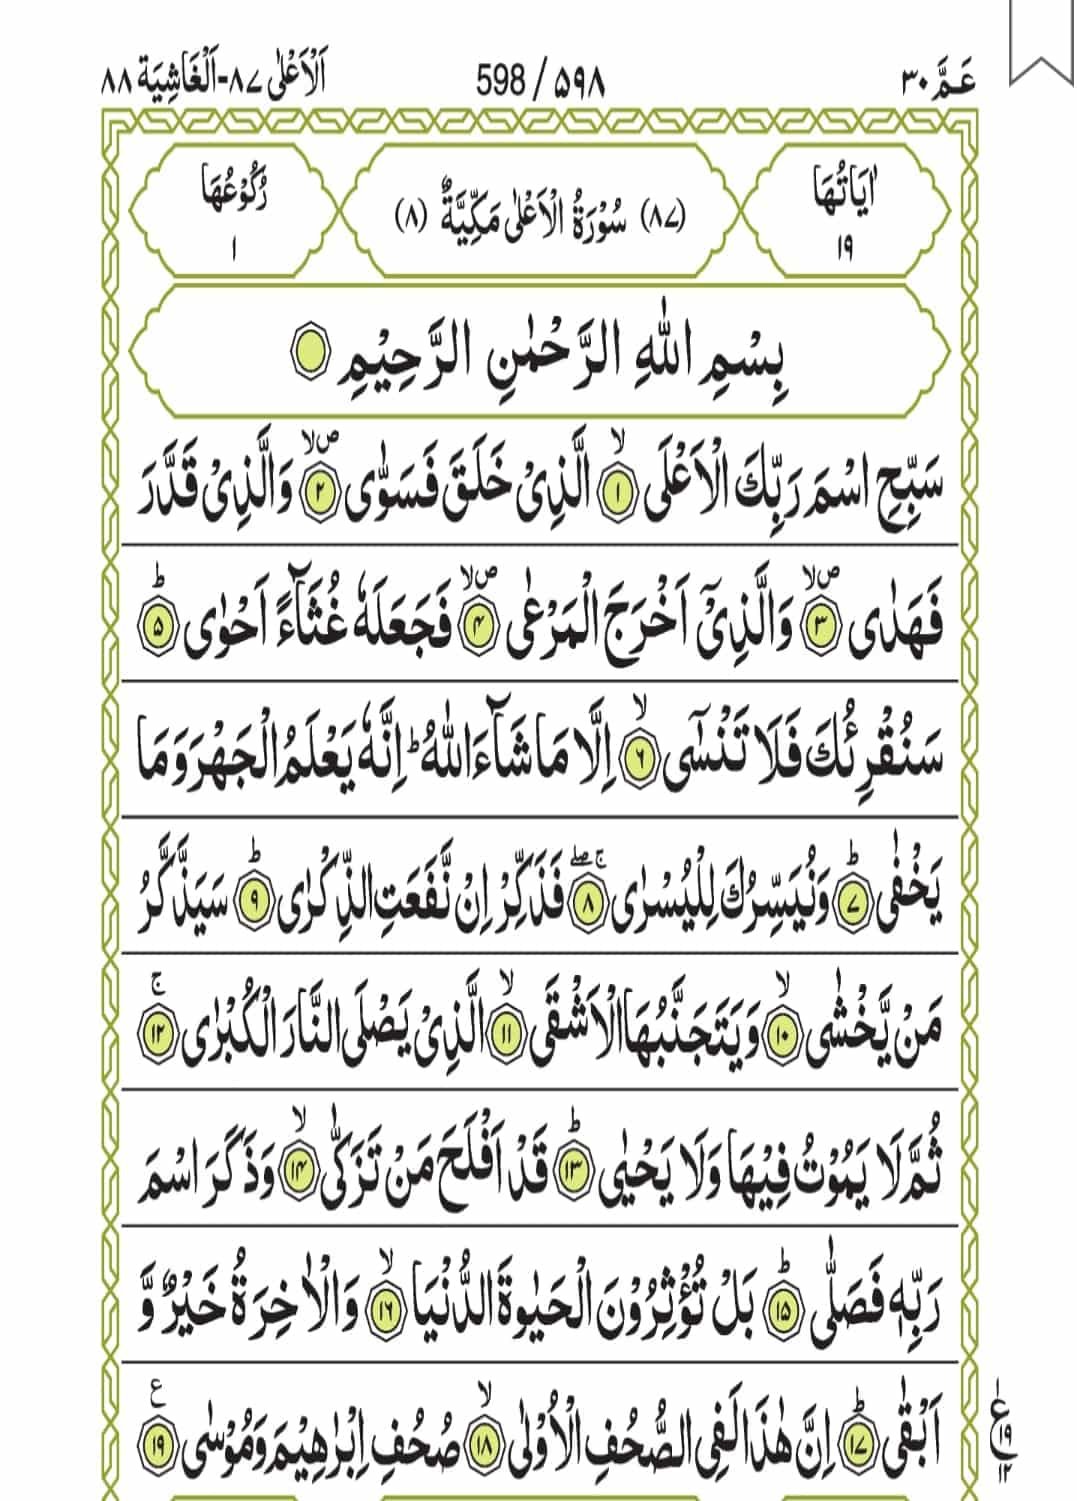 عَمَّ ۳۰
598 / ۵۹۸
اَلْاَعْلٰی ۸۷-اَلْغَاشِيَة ۸۸
اٰيَاتُهَا
۱۹
(۸۷) سُوْرَةُ الْاَعْلٰى مَكِّيَّةٌ (۸)
رُكُوْعُهَا
۱
بِسْمِ اللّٰهِ الرَّحْمٰنِ الرَّحِيْمِ
سَبِّحِ اسْمَ رَبِّكَ الْاَعْلَى ۙ ۱ الَّذِىْ خَلَقَ فَسَوّٰى ۪ۙ ۲ وَالَّذِىْ قَدَّرَ
فَهَدٰى ۪ۙ ۳ وَالَّذِىْٓ اَخْرَجَ الْمَرْعٰى ۪ۙ ۴ فَجَعَلَهٗ غُثَآءً اَحْوٰى ؕ ۵
سَنُقْرِئُكَ فَلَا تَنْسٰٓى ۙ ۶ اِلَّا مَا شَآءَ اللّٰهُ ؕ اِنَّهٗ يَعْلَمُ الْجَهْرَ وَمَا
يَخْفٰى ؕ ۷ وَنُيَسِّرُكَ لِلْيُسْرٰى ۚۖ ۸ فَذَكِّرْ اِنْ نَّفَعَتِ الذِّكْرٰى ؕ ۹ سَيَذَّكَّرُ
مَنْ يَّخْشٰى ۙ ۱۰ وَيَتَجَنَّبُهَا الْاَشْقَى ۙ ۱۱ الَّذِىْ يَصْلَى النَّارَ الْكُبْرٰى ۚ ۱۲
ثُمَّ لَا يَمُوْتُ فِيْهَا وَلَا يَحْيٰى ؕ ۱۳ قَدْ اَفْلَحَ مَنْ تَزَكّٰى ۙ ۱۴ وَذَكَرَ اسْمَ
رَبِّهٖ فَصَلّٰى ؕ ۱۵ بَلْ تُؤْثِرُوْنَ الْحَيٰوةَ الدُّنْيَا ۙ ۱۶ وَالْاٰخِرَةُ خَيْرٌ وَّ
اَبْقٰى ؕ ۱۷ اِنَّ هٰذَا لَفِى الصُّحُفِ الْاُوْلٰى ۙ ۱۸ صُحُفِ اِبْرٰهِيْمَ وَمُوْسٰى ع ۱۹
ع
۱
۱۹
۱۲